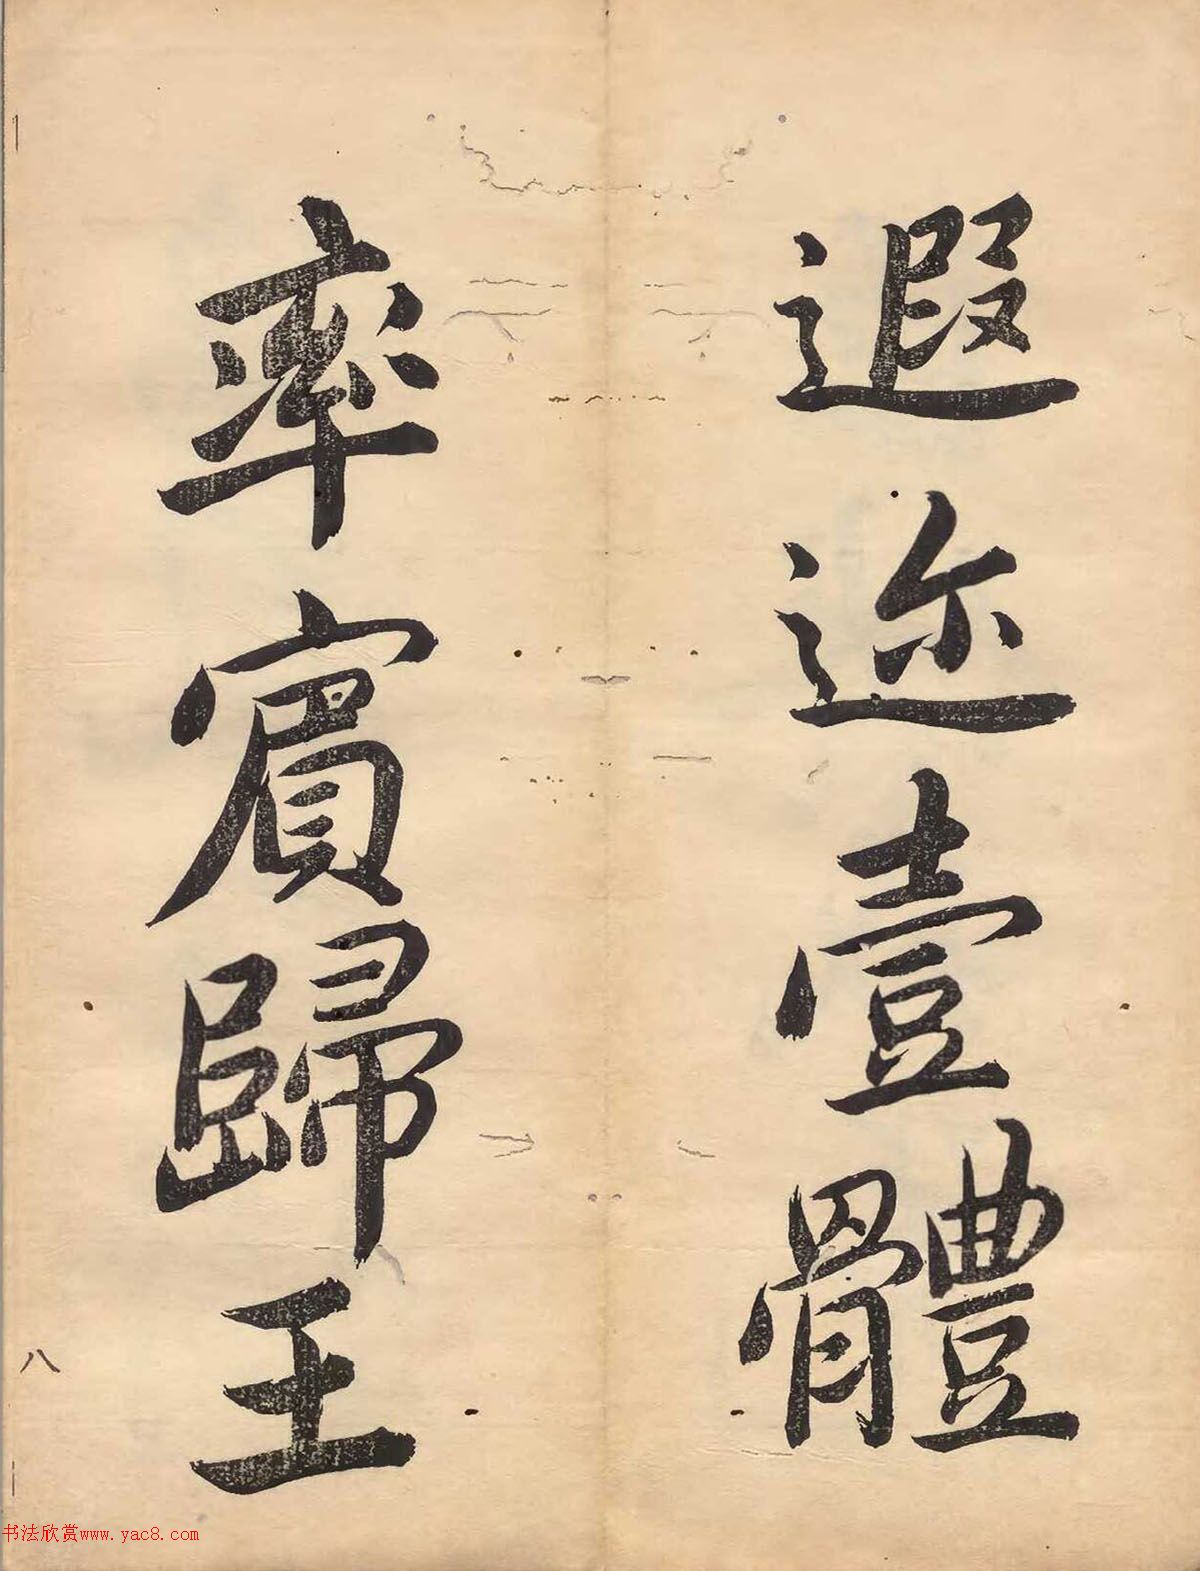 遐迩壹體
率賓歸王
八
书法欣赏www.yac8.com